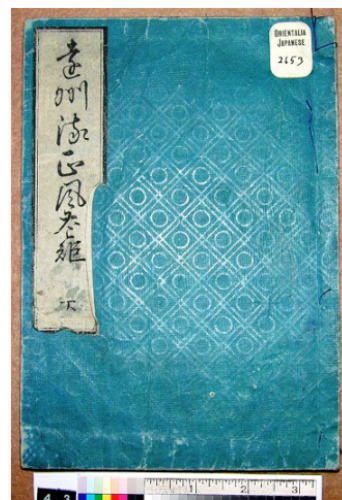 遠州流正風花矩
ORIENTALIA
JAPANESE
2653
4 3
1 2 3